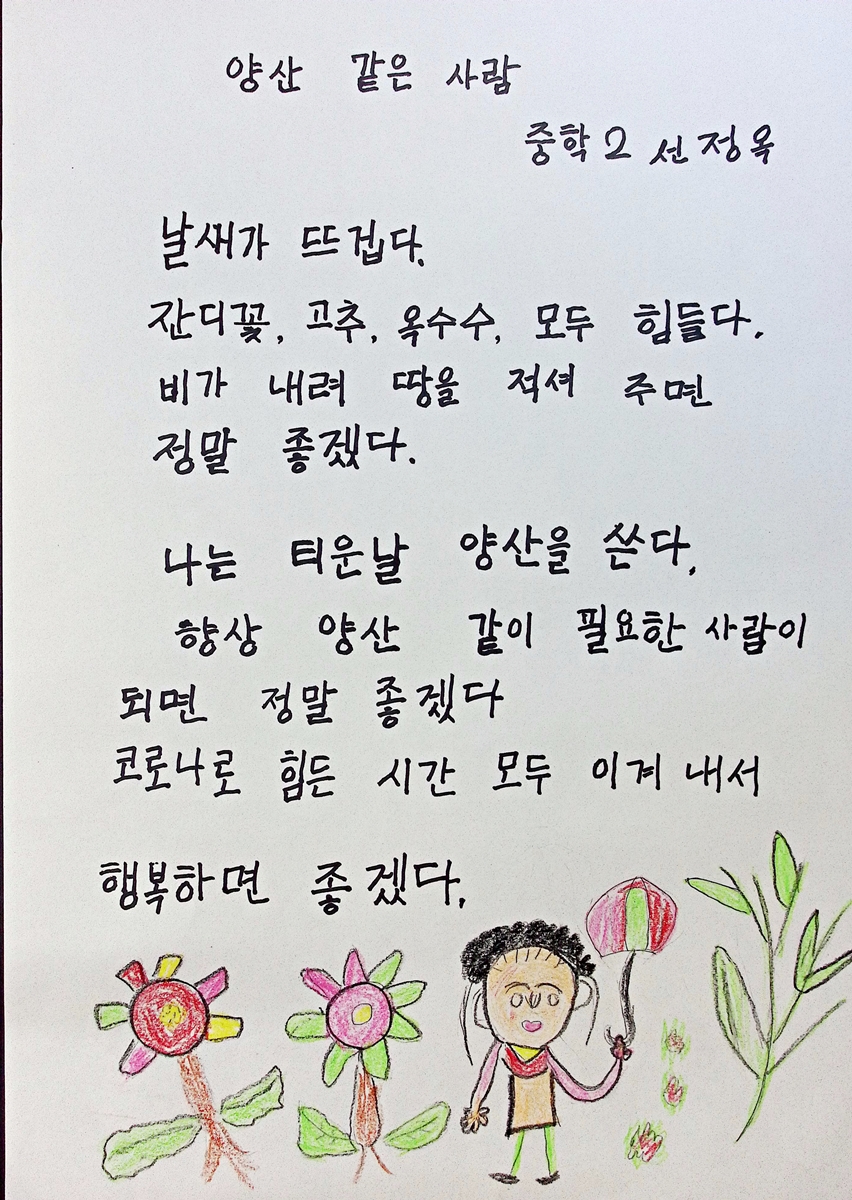 양산 같은 사람
중학2 선정옥
날새가 뜨겁다.
잔디꽃, 고추, 옥수수, 모두 힘들다.
비가 내려 땅을 적셔 주면
정말 좋겠다.
나는 티운날 양산을 쓴다,
향상 양산 같이 필요한 사람이
되면 정말 좋겠다
코로나로 힘든 시간 모두 이계 내서
행복하면 좋겠다.